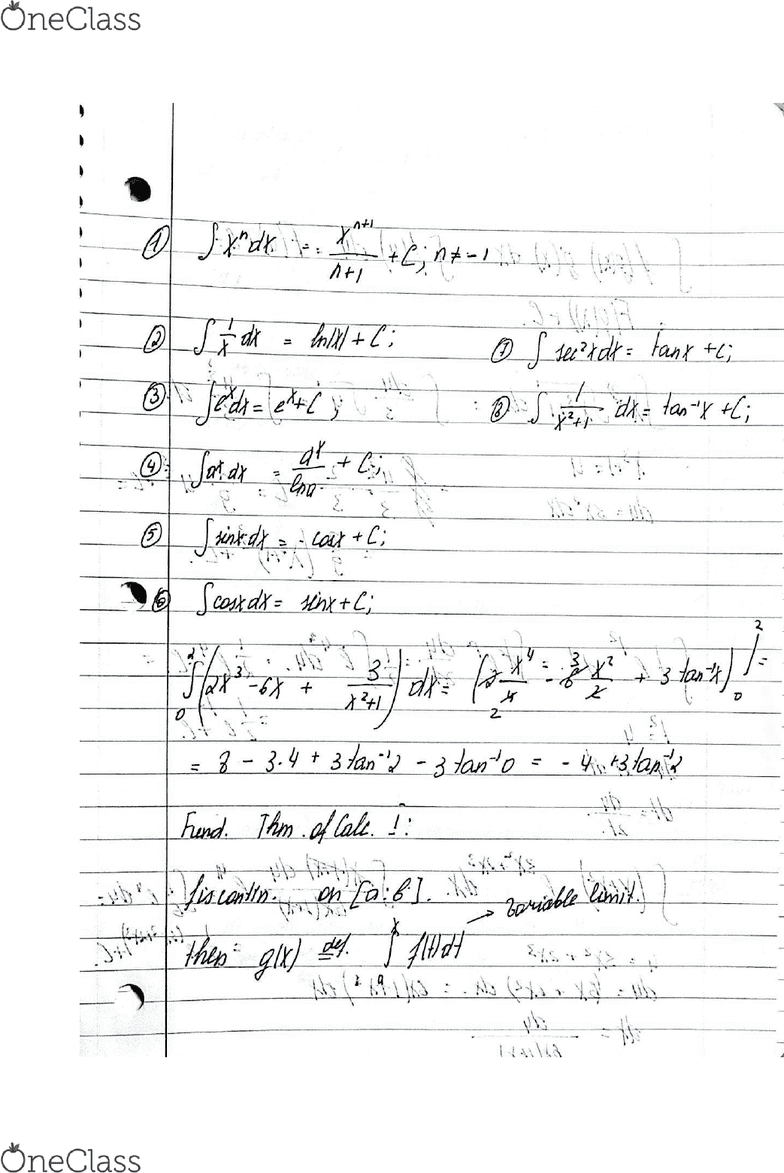 OneClass
① ∫ xⁿ dx = xⁿ⁺¹/(n+1) + C; n ≠ -1
② ∫ 1/x dx = ln|x| + C;
⑦ ∫ sec²x dx = tanx + C;
③ ∫ eˣdx = eˣ + C;
⑧ ∫ 1/(x²+1) dx = tan⁻¹x + C;
④ ∫ aˣ dx = aˣ/lna + C;
⑤ ∫ sinx dx = - cosx + C;
⑥ ∫ cosx dx = sinx + C;
∫₀² (2x³ - 6x + 3/(x²+1)) dx = (2 x⁴/4 - 6 x²/2 + 3 tan⁻¹x) ]₀² =
= 8 - 3·4 + 3 tan⁻¹2 - 3 tan⁻¹0 = - 4 + 3 tan⁻¹2
Fund. Thm. of Calc. 1:
f is contin. on [a; b].
then g(x) def. = ∫ₐˣ f(t)dt → variable limit.
OneClass